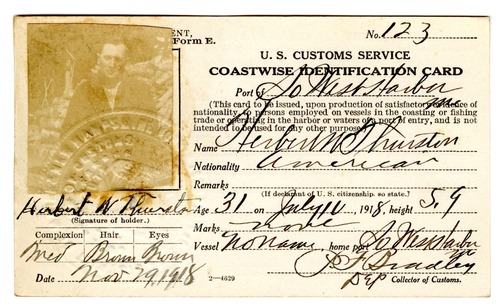 ENT,
Form E.
No. 123
U. S. CUSTOMS SERVICE
COASTWISE IDENTIFICATION CARD
Port of So West Harbor
(This card to be issued, upon production of satisfactory evidence of
nationality, to persons employed on vessels in the coasting or fishing
trade or operating in the harbor or waters of a port of entry, and is not
intended to be used for any other purpose.)
Name Herbert W Thurston
Nationality American
Remarks
(If declarant of U. S. citizenship, so state.)
Herbert W. Thurston
(Signature of holder.)
Age 31 on July 11, 1918, height 5.9
Marks none
Complexion Hair Eyes
Med Brown Brown
Vessel No name, home port So West Harbor
J F Bradley
Date Nov 29, 1918
2—4629
Dep Collector of Customs.